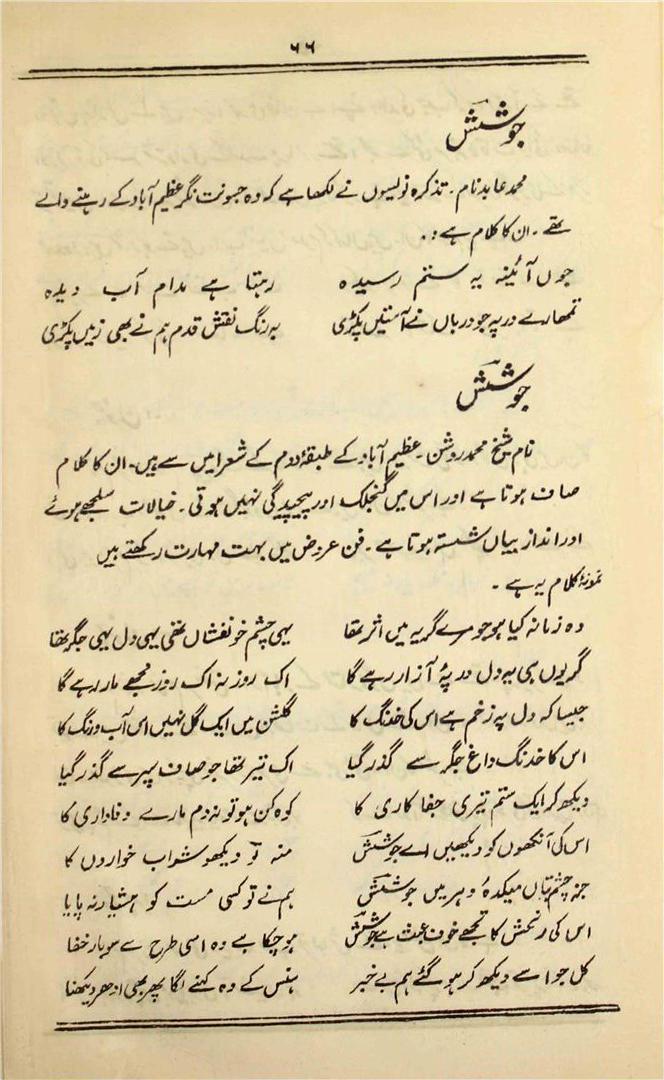 ۶۶
جوشش
محمد عابد نام۔ تذکرہ نویسوں نے لکھا ہے کہ وہ جسونت نگر عظیم آباد کے رہنے والے
تھے۔ ان کا کلام ہے:۔
جوں آئینہ یہ ستم رسیدہ رہتا ہے مدام آب دیدہ
تمھارے در پہ جو درباں نے آستیں پکڑی بہ رنگ نقش قدم ہم نے بھی زمیں پکڑی
جوشش
نام شیخ محمد روشن۔ عظیم آباد کے طبقۂ دوم کے شعرا میں سے ہیں۔ ان کا کلام
صاف ہوتا ہے اور اس میں گنجلک اور پیچیدگی نہیں ہوتی۔ خیالات سلجھے ہوئے
اور انداز بیاں شستہ ہوتا ہے۔ فن عروض میں بہت مہارت رکھتے ہیں
نمونۂ کلام یہ ہے۔
وہ زمانہ کیا ہوا جو مرے گریہ میں اثر تھا یہی چشم خونفشاں تھی یہی دل یہی جگر تھا
گر یوں ہی یہ دل در پۂ آزار رہے گا اک روز نہ اک روز مجھے مار رہے گا
جیسا کہ دل پہ زخم ہے اس کی خدنگ کا گلشن میں ایک گل نہیں اس آب و رنگ کا
اس کا خدنگ داغ جگر سے گذر گیا اک تیر تھا جو صاف سپر سے گذر گیا
دیکھ کر ایک ستم تیری جفا کاری کا کوہ کن ہو تو نہ دم مارے وفاداری کا
اس کی آنکھوں کو دیکھیں اے جوشش منہ تو دیکھو شراب خواروں کا
جز چشم بتاں میکدۂ دہر میں جوشش ہم نے تو کسی مست کو ہشیار نہ پایا
اس کی رنجش کا تجھے خوف عبث ہے جوشش ہو چکا ہے وہ اسی طرح سے سو بار خفا
کل جو اسے دیکھ کر ہو گئے ہم بے خبر ہنس کے وہ کہنے لگا پھر بھی ادھر دیکھنا